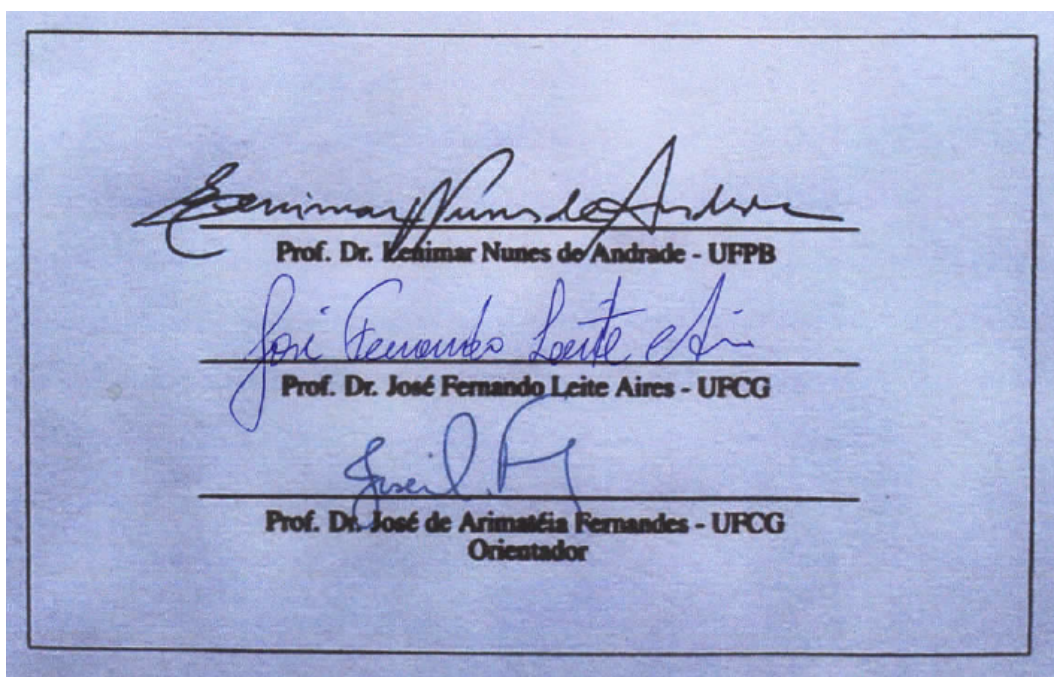 Lenimar Nunes de Andrade
Prof. Dr. Lenimar Nunes de Andrade - UFPB
José Fernando Leite Aires
Prof. Dr. José Fernando Leite Aires - UFCG
Prof. Dr. José de Arimatéia Fernandes - UFCG
Orientador